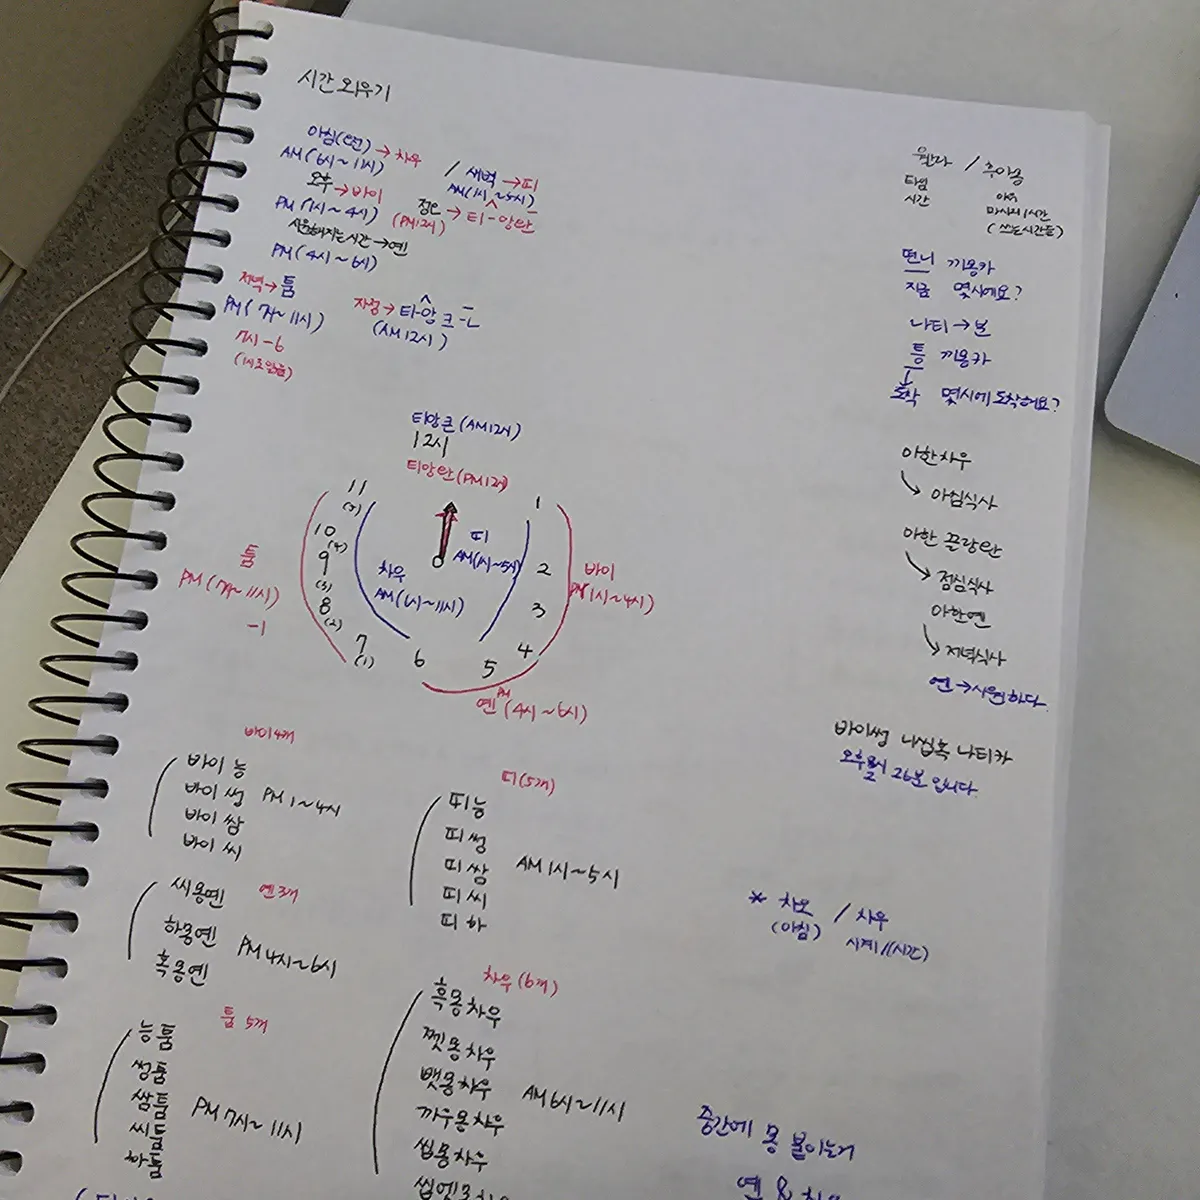 시간 외우기
아침(오전) → 차우
AM(6시~11시)
/ 새벽 → 피
AM(1시~5시)
오후 → 바이
PM(1시~4시)
정오 → 티-앙탄
(PM12시)
시원해지는시간 → 옌
PM(4시~6시)
저녁 → 툼
PM(7시~11시)
7시-6
자정 → 티-앙크-ㄴ
(AM12시)
티앙큰(AM12시)
12시
티앙탄(PM12시)
11
(5)
10
(4)
9
(3)
8
(2)
7
(1)
6
5
4
3
2
1
피
AM(1시~5시)
차우
AM(6시~11시)
툼
PM(7시~11시)
-1
바이
PM(1시~4시)
옌 PM(4시~6시)
바이4개
바이 능
바이 썽
바이 쌈
바이 씨
PM 1~4시
옌3개
씨몽옌
하몽옌
혹몽옌
PM 4시~6시
툼 5개
능툼
썽툼
쌈툼
씨툼
하툼
PM 7시~11시
피(5개)
피능
피썽
피쌈
피씨
피하
AM 1시~5시
차우(6개)
혹몽차우
쩻몽차우
뺏몽차우
까우몽차우
씹몽차우
AM 6시~11시
타임
시간
떤니 끼몽카
지금 몇시에요?
나티 → 분
틍 끼몽카
도착 몇시에 도착해요?
아한차우
아침식사
아한 끌랑완
점심식사
아한옌
저녁식사
옌 → 시원하다.
바이썽 나씹혹 나티카
오후2시 26분 입니다.
* 차오 / 차우
(아침) 시계/(시간)
중간에 몽 붙이는거
옌 &